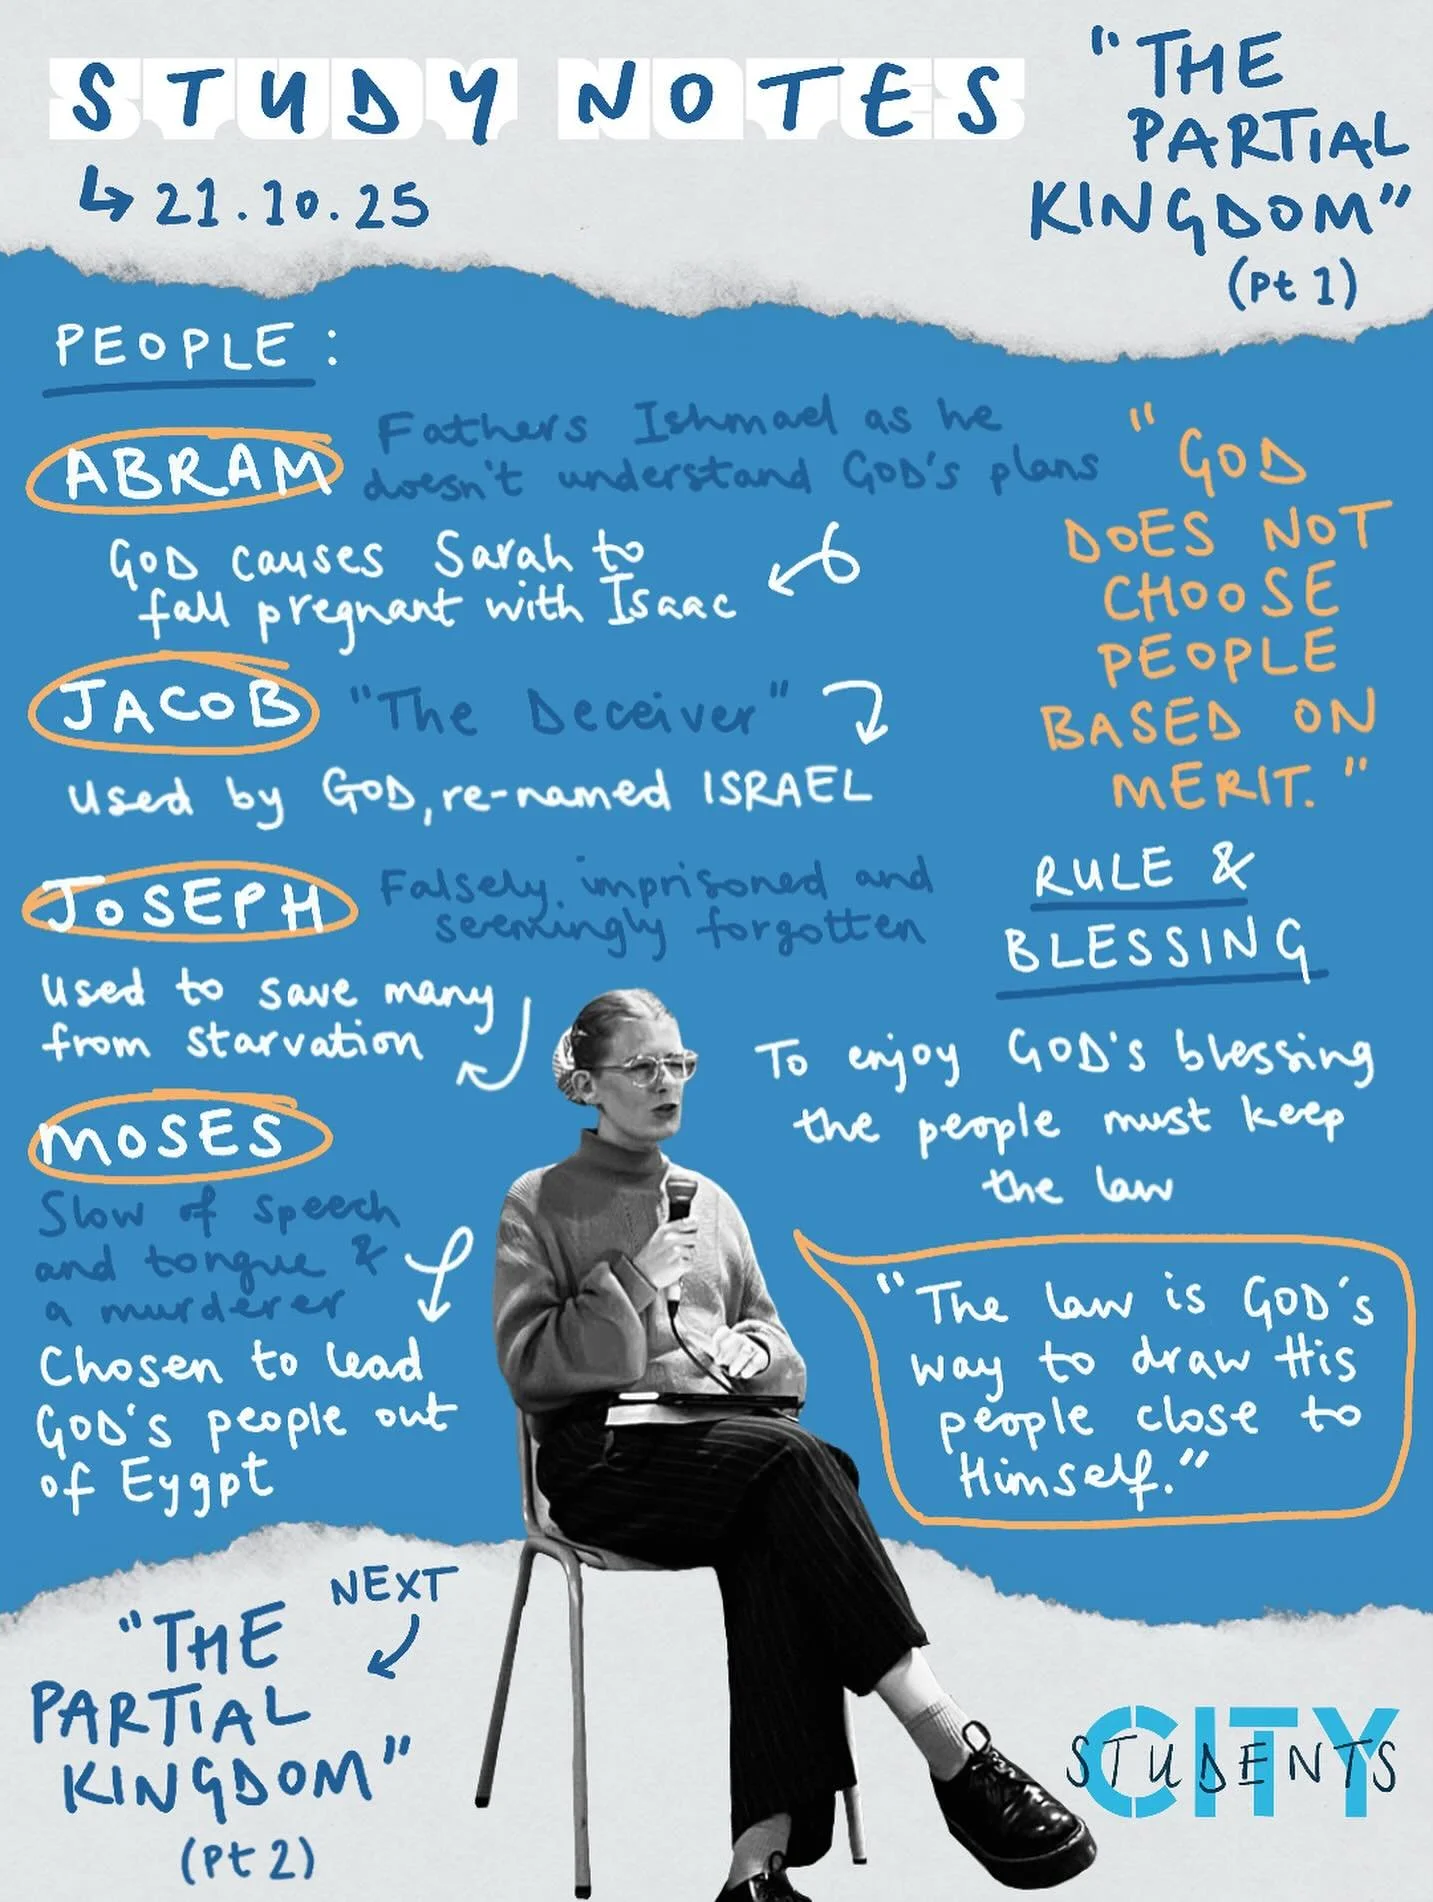 STUDY NOTES
↳ 21.10.25
"THE
PARTIAL
KINGDOM"
(Pt 1)
PEOPLE :
ABRAM
Fathers Ishmael as he
doesn't understand GOD's plans
GOD causes Sarah to
fall pregnant with Isaac
JACOB
"The Deceiver"
used by GOD, re-named ISRAEL
JOSEPH
Falsely imprisoned and
seemingly forgotten
used to save many
from starvation
MOSES
Slow of speech
and tongue &
a murderer
Chosen to lead
GOD's people out
of Eygpt
"GOD
DOES NOT
CHOOSE
PEOPLE
BASED ON
MERIT."
RULE &
BLESSING
To enjoy GOD's blessing
the people must keep
the law
"The law is GOD's
way to draw His
people close to
Himself."
NEXT
"THE
PARTIAL
KINGDOM"
(Pt 2)
CITY
STUDENTS